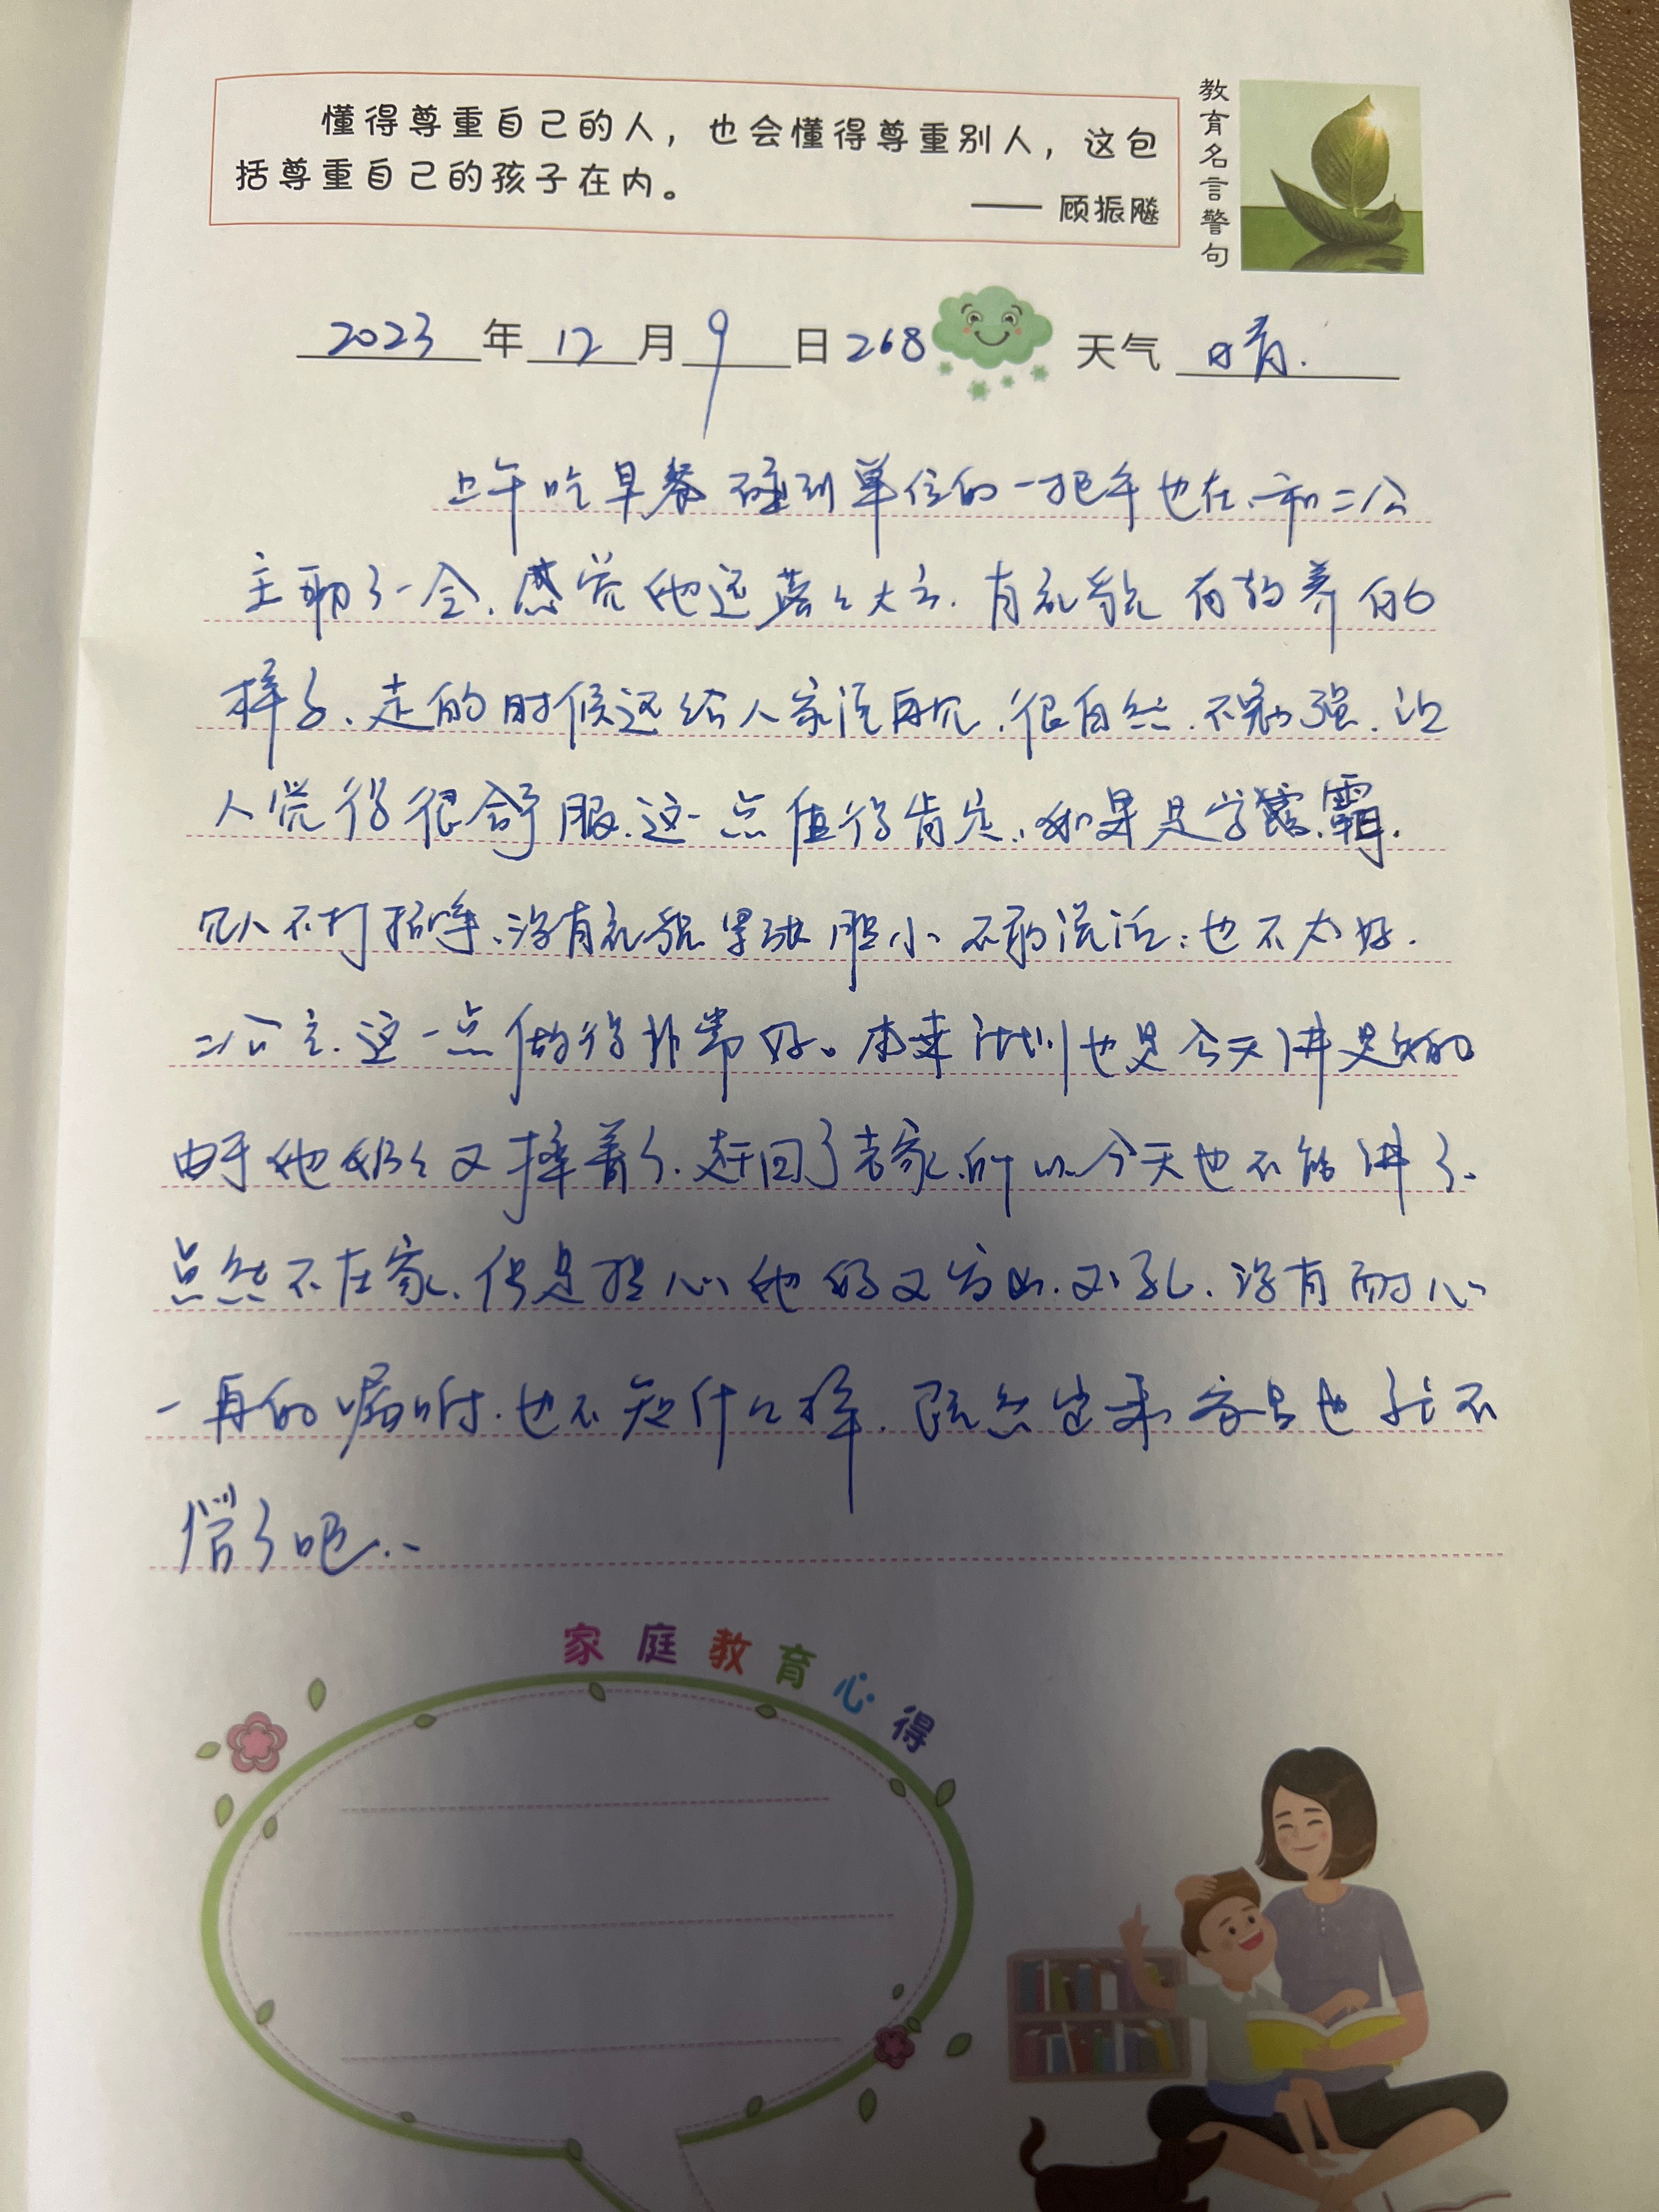 懂得尊重自己的人，也会懂得尊重别人，这包
括尊重自己的孩子在内。
—— 顾振飚
教育名言警句
2023年12月9日268 天气 晴.
上午吃早餐碰到单位的一把手也在、和二公
主聊了一会、感觉她还落落大方.有礼貌有教养的
样子、走的时候还给人家说再见.很自然.不勉强.让
人觉得很舒服.这一点值得肯定.如果是学霸.
见人不打招呼、没有礼貌 胆小 不敢说话;也不太好.
二公主.这一点做得非常好。本来计划也是今天讲
由于她奶奶又摔着了.赶回了老家.所以今天也不能讲了、
虽然不在家.但是担心她妈又 没有耐心
一再的嘱咐.也不知什么样.既然出来 也就不
管了吧..
家庭教育心得